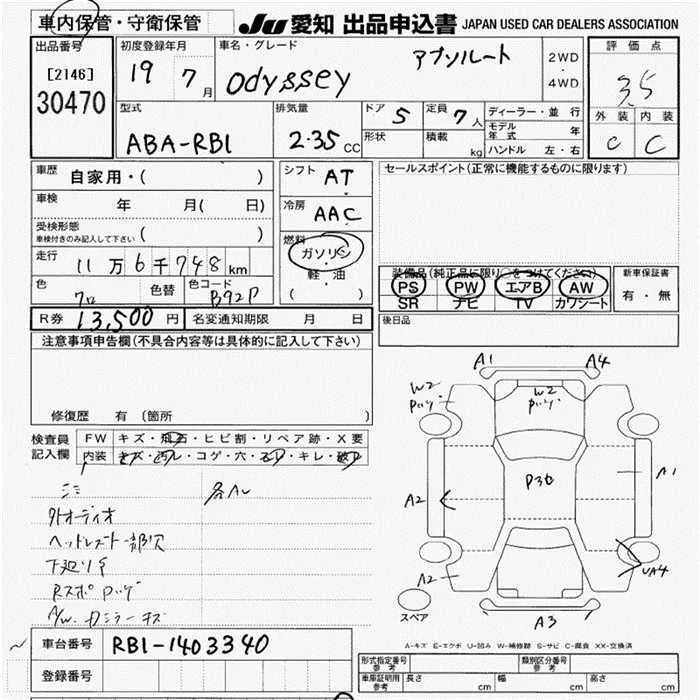 車内保管・守衛保管 JU 愛知 出品申込書 JAPAN USED CAR DEALERS ASSOCIATION
出品番号
[2146]
30470
初度登録年月
19 7月
車名・グレード
odyssey アブソルート
2WD
・
4WD
評価点
3.5
外装 内装
C C
型式
ABA-RB1
排気量
2.35 CC
ドア 5
形状
定員 7人
積載 kg
ディーラー・並行
モデル年式 年
ハンドル 左・右
車歴 自家用・( )
車検 年 月( 日)
受検形態
車検付きのみ記入して下さい ( )
走行 11万6千748km
色 クロ 色替 色コード B92P
シフト AT
冷房 AAC
燃料
ガソリン
・
軽・油
( )
セールスポイント(正常に機能するものに限ります)
装備品(純正品に限り○をつけてください)
PS PW エアB AW
SR ナビ TV カワシート
新車保証書
有・無
R券 13,500円 名変通知期限 月 日
後日品
注意事項申告欄(不具合内容等は具体的に記入して下さい)
修復歴 有 (箇所
検査員
記入欄
FW キズ・飛石・ヒビ割・リペア跡・X要
内装 キズ・汚レ・コゲ・穴・スレ・キレ・破レ
外オーディオ
ヘッドレスト一部欠
下廻りサ
A/W.カシラーキズ
各ヘレ
A1 A4
W2
W2
P36
A1
A2
A2
UA4
A3
スペア
A-キズ E-エクボ U-凹み W-補修跡 S-サビ C-腐食 XX-交換済
車台番号 RB1-1403340
登録番号
形式指定番号
参考
類別区分番号
参考
車庫証明用
参考
長さ cm 幅 cm 高さ cm